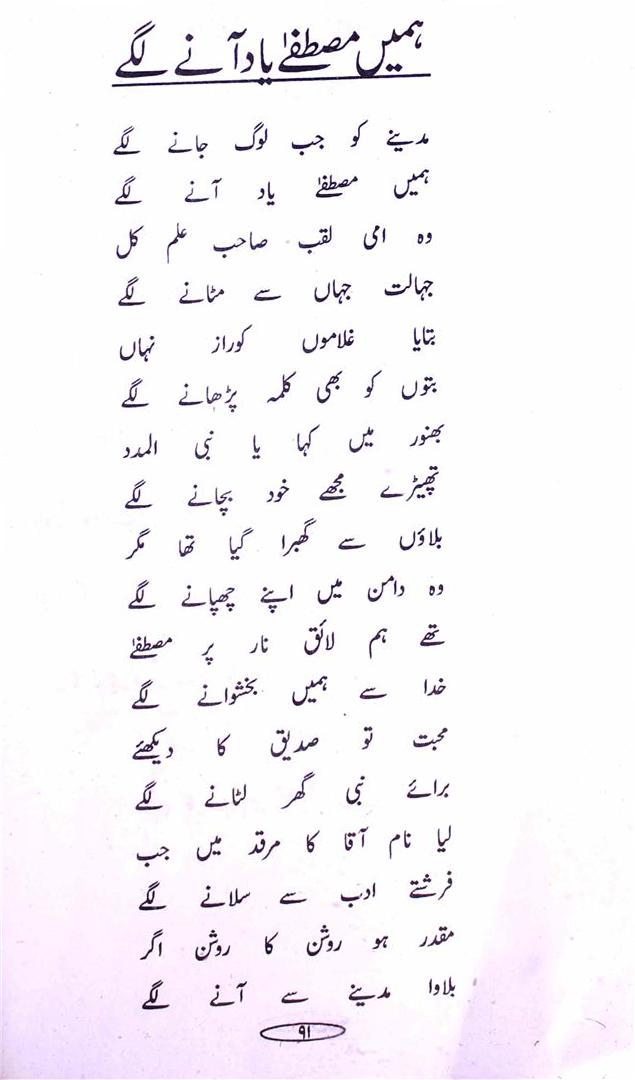 ہمیں مصطفےٰ یاد آنے لگے
مدینے کو جب لوگ جانے لگے
ہمیں مصطفےٰ یاد آنے لگے
وہ امی لقب صاحب علم کل
جہالت جہاں سے مٹانے لگے
بتایا غلاموں کوراز نہاں
بتوں کو بھی کلمہ پڑھانے لگے
بھنور میں کہا یا نبی المدد
تھپیڑے مجھے خود بچانے لگے
بلاؤں سے گھبرا گیا تھا مگر
وہ دامن میں اپنے چھپانے لگے
تھے ہم لائق نار پر مصطفےٰ
خدا سے ہمیں بخشوانے لگے
محبت تو صدیق کا دیکھئے
برائے نبی گھر لٹانے لگے
لیا نام آقا کا مرقد میں جب
فرشتے ادب سے سلانے لگے
مقدر ہو روشن کا روشن اگر
بلاوا مدینے سے آنے لگے
۹۱